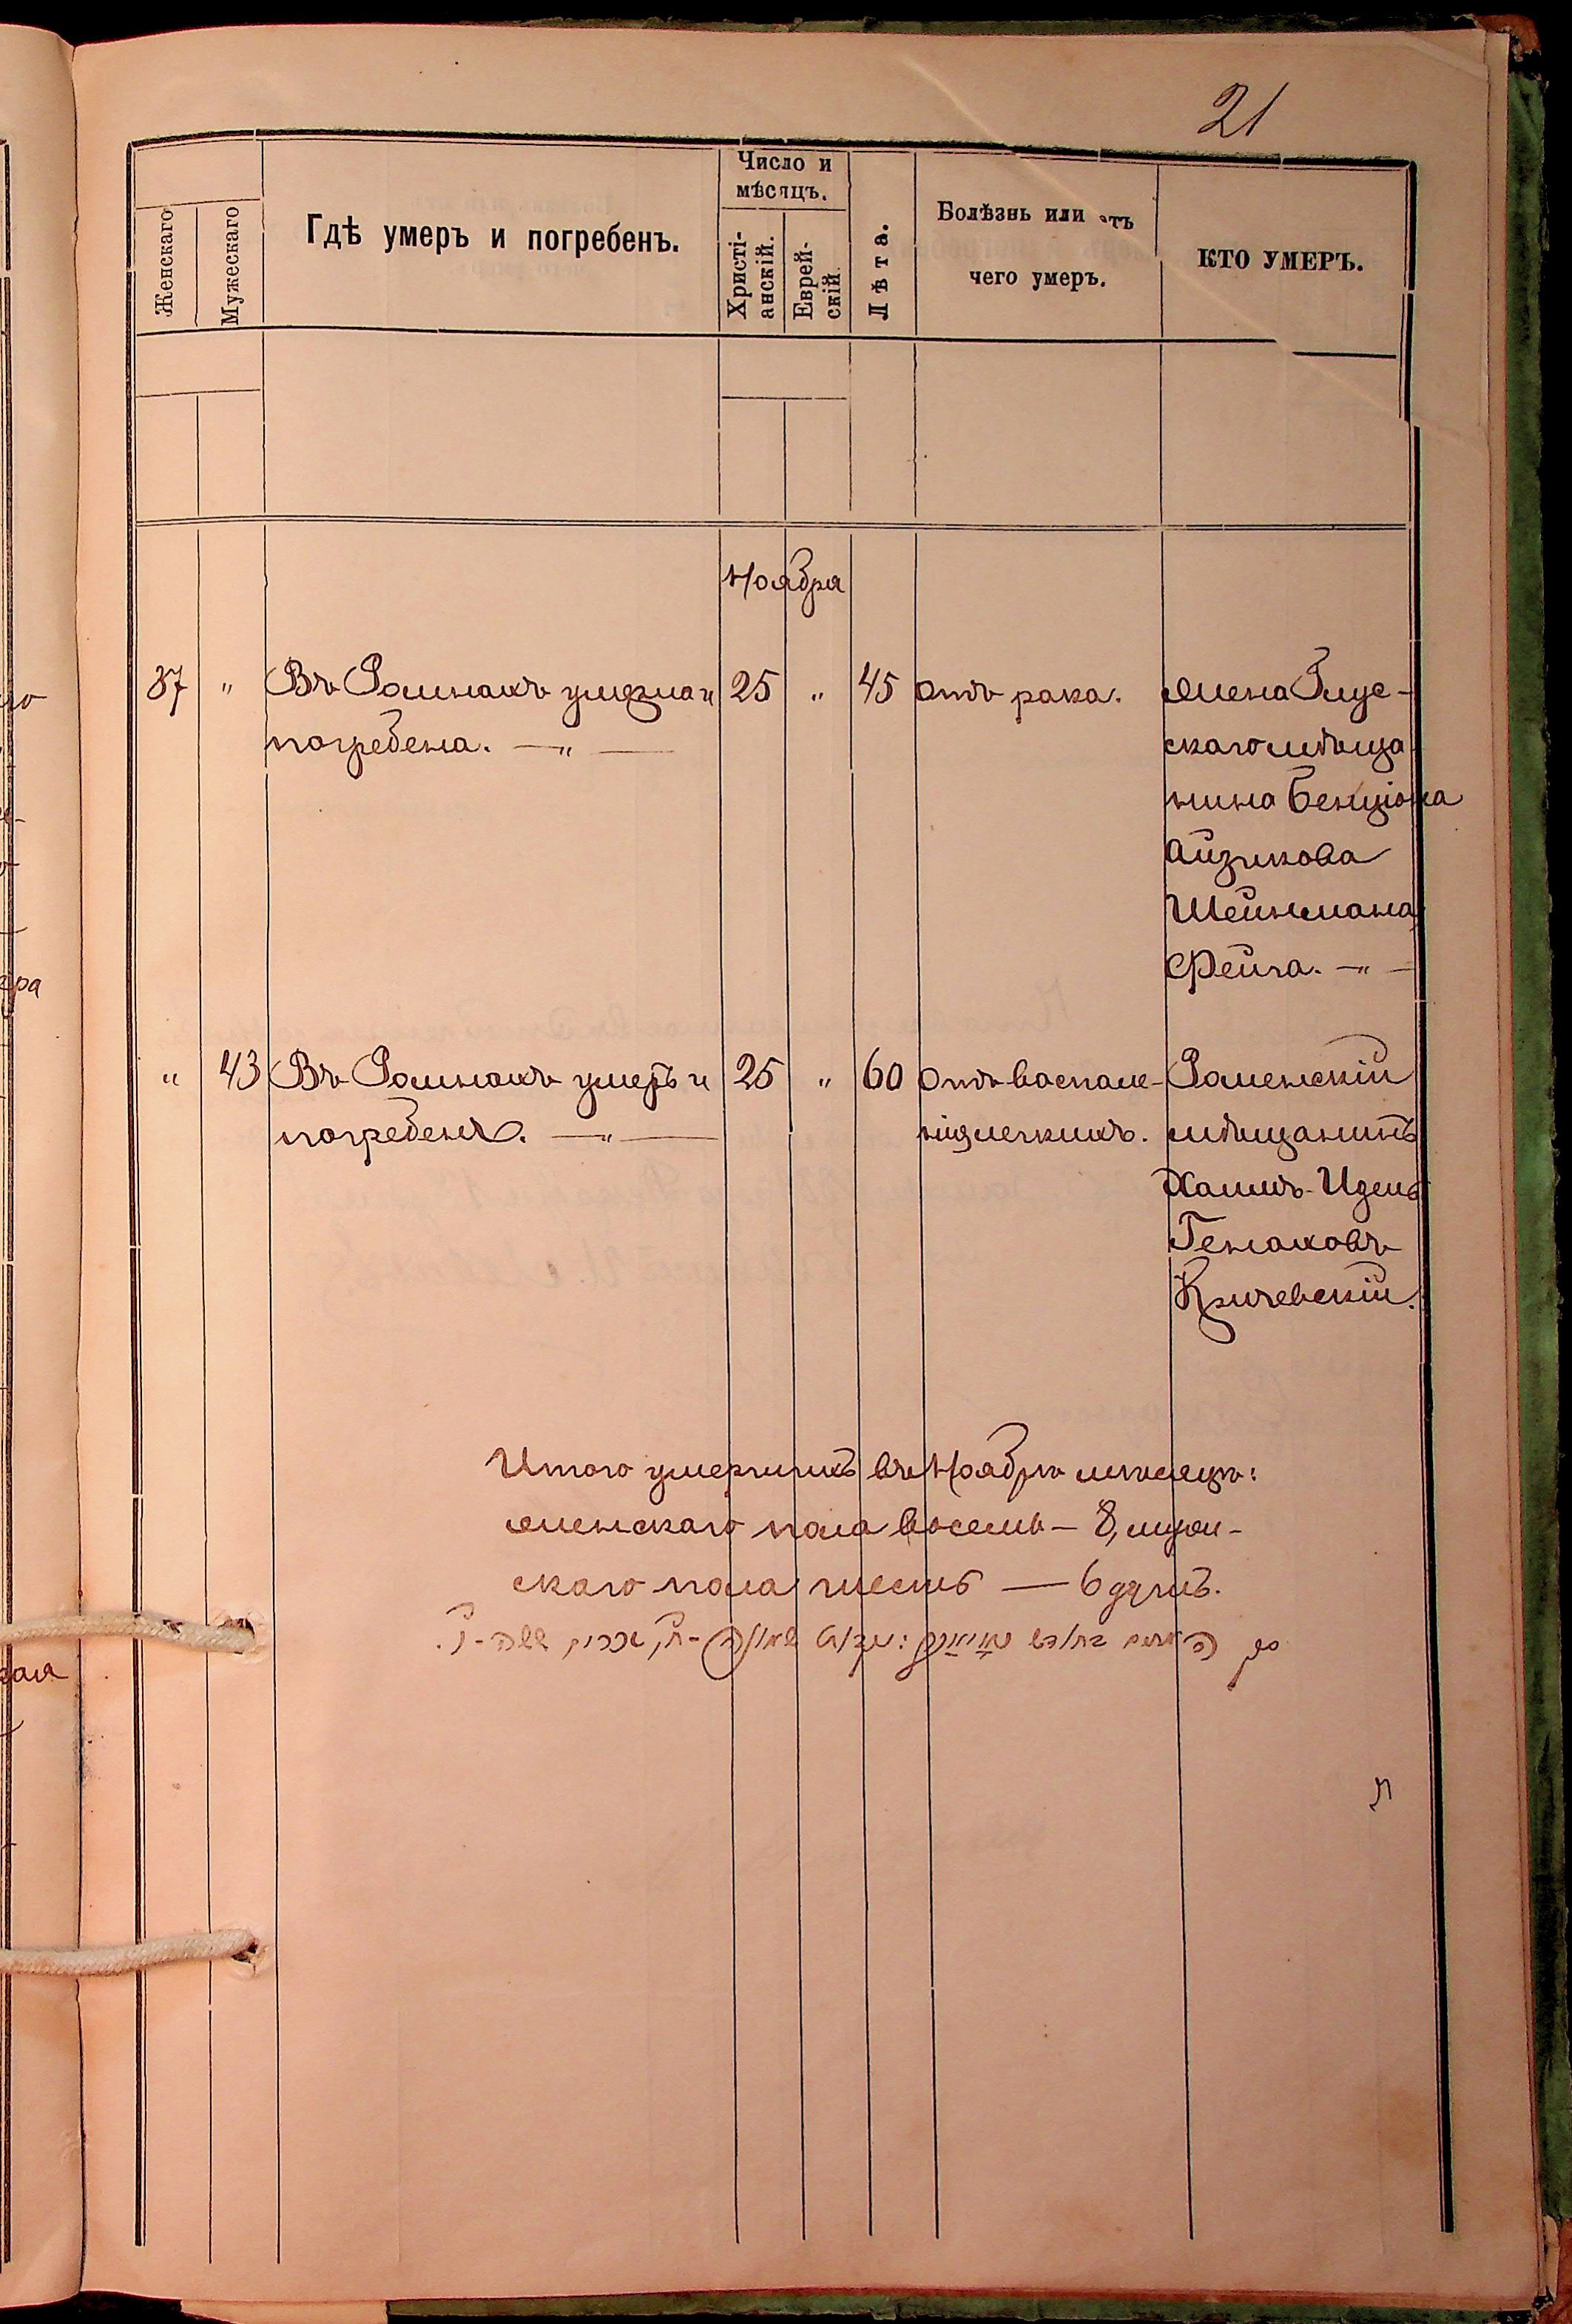 21
Женскаго
Мужескаго
Гдѣ умеръ и погребенъ.
Число и
мѣсяцъ.
Христі-
анскій.
Еврей-
скій.
Лѣта.
Болѣзнь или отъ
чего умеръ.
КТО УМЕРЪ.
Ноября
37 " Въ Ромнахъ умерла и 25 " 45 Отъ рака. Жена Глус-
погребена. — " — скаго мѣща-
нина Бенціона
Айзикова
Шейнмана
Фейга. — " —
" 43 Въ Ромнахъ умеръ и 25 " 60 Отъ воспале- Роменскій
погребенъ. — " — нія легкихъ. мѣщанинъ
Хаимъ-Идель
Генаховъ
Кричевскій.
Итого умершихъ въ Ноябрѣ мѣсяцѣ:
женскаго пола восемь — 8, муж-
скаго пола шесть — 6 душъ.